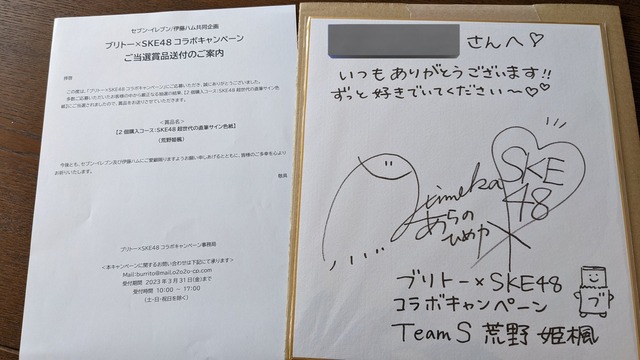 セブン-イレブン/伊藤ハム共同企画
ブリトー×SKE48 コラボキャンペーン
ご当選賞品送付のご案内
拝啓
この度は、「ブリトー×SKE48 コラボキャンペーン」にご応募いただき、誠にありがとうございました。
多数ご応募いただいたお客様の中から厳正なる抽選の結果、【2 個購入コース：SKE48 超世代の直筆サイン色
紙】にご当選されましたので、賞品をお送りさせていただきます。
<賞品名>
【2 個購入コース：SKE48 超世代の直筆サイン色紙】
(荒野姫楓)
今後とも、セブン-イレブン及び伊藤ハムにご愛顧賜りますようお願い申しあげるとともに、皆様のご多幸を心より
お祈りいたします。
敬具
ブリトー×SKE48 コラボキャンペーン事務局
<本キャンペーンに関するお問い合わせは下記にて承ります>
Mail:burrito@mail.o2o2o-cp.com
受付期間 2023 年 3 月 31 日(金)まで
受付時間 10:00 ~ 17:00
(土・日・祝日を除く)
さんへ♡
いつもありがとうございます!!
ずっと好きでいてください〜♡♡
Himeka
あらの
ひめか
SKE
48
ブリトー×SKE48
コラボキャンペーン
Team S 荒野 姫楓
ブ